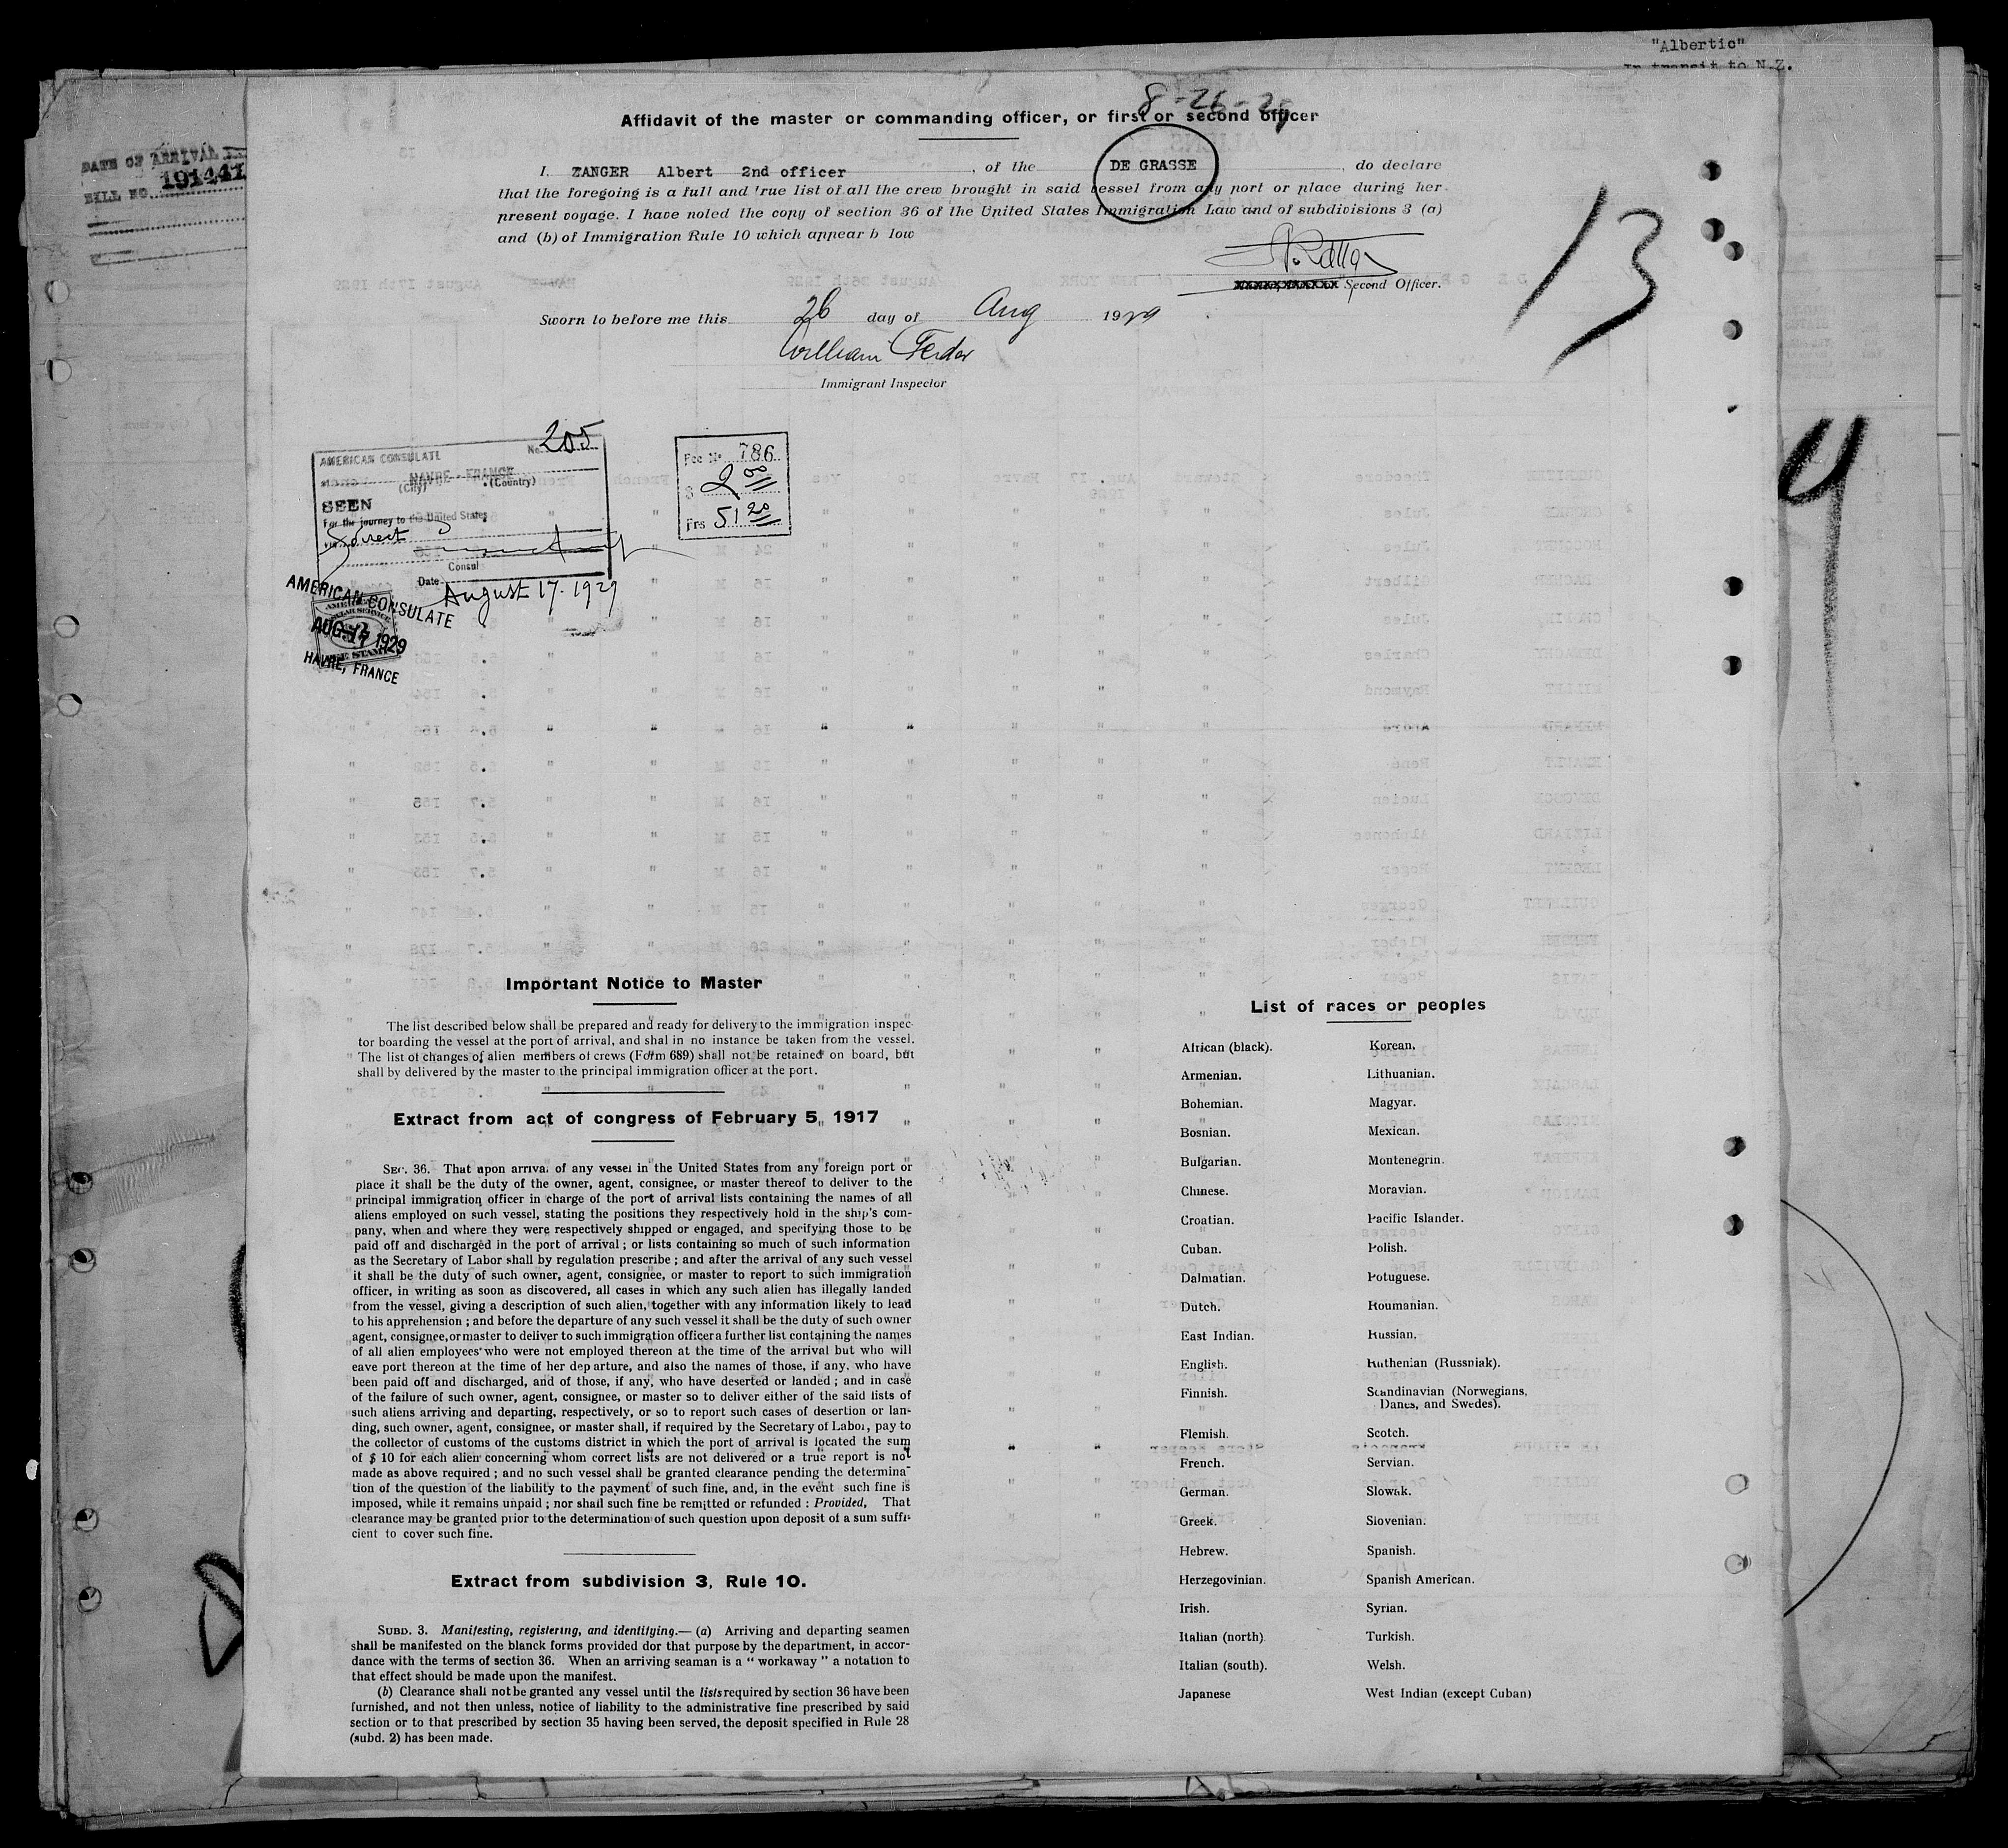 "Albertic"
In transit to N.Z.
DATE OF ARRIVAL
BILL NO. 191441
8-26-29
Affidavit of the master or commanding officer, or first or second officer
I. ZANGER Albert 2nd officer, of the DE GRASSE, do declare
that the foregoing is a full and true list of all the crew brought in said vessel from any port or place during her
present voyage. I have noted the copy of section 36 of the United States Immigration Law and of subdivisions 3 (a)
and (b) of Immigration Rule 10 which appear b low
13
Second Officer.
Sworn to before me this 26 day of Aug 1929
William
Immigrant Inspector
4
AMERICAN CONSULATE No. 205
at HAVRE - FRANCE
(City) (Country)
SEEN
For the journey to the United States
via direct
Consul
Date August 17. 1929
Fee No 786
$ 2 00
Frs 51 20
AMERICAN CONSULATE
AUG 17 1929
HAVRE, FRANCE
Important Notice to Master
The list described below shall be prepared and ready for delivery to the immigration inspec-
tor boarding the vessel at the port of arrival, and shal in no instance be taken from the vessel.
The list of changes of alien members of crews (Form 689) shall not be retained on board, but
shall by delivered by the master to the principal immigration officer at the port.
Extract from act of congress of February 5, 1917
SEC. 36. That upon arrival of any vessel in the United States from any foreign port or
place it shall be the duty of the owner, agent, consignee, or master thereof to deliver to the
principal immigration officer in charge of the port of arrival lists containing the names of all
aliens employed on such vessel, stating the positions they respectively hold in the ship's com-
pany, when and where they were respectively shipped or engaged, and specifying those to be
paid off and discharged in the port of arrival ; or lists containing so much of such information
as the Secretary of Labor shall by regulation prescribe ; and after the arrival of any such vessel
it shall be the duty of such owner, agent, consignee, or master to report to such immigration
officer, in writing as soon as discovered, all cases in which any such alien has illegally landed
from the vessel, giving a description of such alien, together with any information likely to lead
to his apprehension ; and before the departure of any such vessel it shall be the duty of such owner
agent, consignee, or master to deliver to such immigration officer a further list containing the names
of all alien employees who were not employed thereon at the time of the arrival but who will
eave port thereon at the time of her dep arture, and also the names of those, if any, who have
been paid off and discharged, and of those, if any, who have deserted or landed ; and in case
of the failure of such owner, agent, consignee, or master so to deliver either of the said lists of
such aliens arriving and departing, respectively, or so to report such cases of desertion or lan-
ding, such owner, agent, consignee, or master shall, if required by the Secretary of Labor, pay to
the collector of customs of the customs district in which the port of arrival is located the sum
of $ 10 for each alien concerning whom correct lists are not delivered or a true report is not
made as above required ; and no such vessel shall be granted clearance pending the determina-
tion of the question of the liability to the payment of such fine, and, in the event such fine is
imposed, while it remains unpaid ; nor shall such fine be remitted or refunded : Provided, That
clearance may be granted prior to the determination of such question upon deposit of a sum suffi-
cient to cover such fine.
Extract from subdivision 3, Rule 10.
SUBD. 3. Manifesting, registering, and identifying.— (a) Arriving and departing seamen
shall be manifested on the blanck forms provided dor that purpose by the department, in accor-
dance with the terms of section 36. When an arriving seaman is a “ workaway ” a notation to
that effect should be made upon the manifest.
(b) Clearance shall not be granted any vessel until the lists required by section 36 have been
furnished, and not then unless, notice of liability to the administrative fine prescribed by said
section or to that prescribed by section 35 having been served, the deposit specified in Rule 28
(subd. 2) has been made.
List of races or peoples
African (black). Korean.
Armenian. Lithuanian.
Bohemian. Magyar.
Bosnian. Mexican.
Bulgarian. Montenegrin.
Chinese. Moravian.
Croatian. Pacific Islander.
Cuban. Polish.
Dalmatian. Potuguese.
Dutch. Roumanian.
East Indian. Russian.
English. Ruthenian (Russniak).
Finnish. Scandinavian (Norwegians,
Danes, and Swedes).
Flemish. Scotch.
French. Servian.
German. Slowak.
Greek. Slovenian.
Hebrew. Spanish.
Herzegovinian. Spanish American.
Irish. Syrian.
Italian (north). Turkish.
Italian (south). Welsh.
Japanese West Indian (except Cuban)